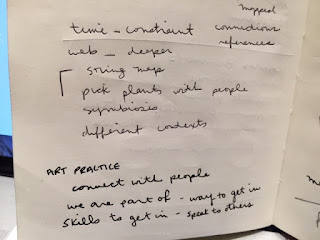 mapped
time - constraint connections
web - deeper references
string map
pick plants with people
symbiosis
different contexts
ART PRACTICE
connect with people
we are part of - way to get in
skills to get in - speak to others